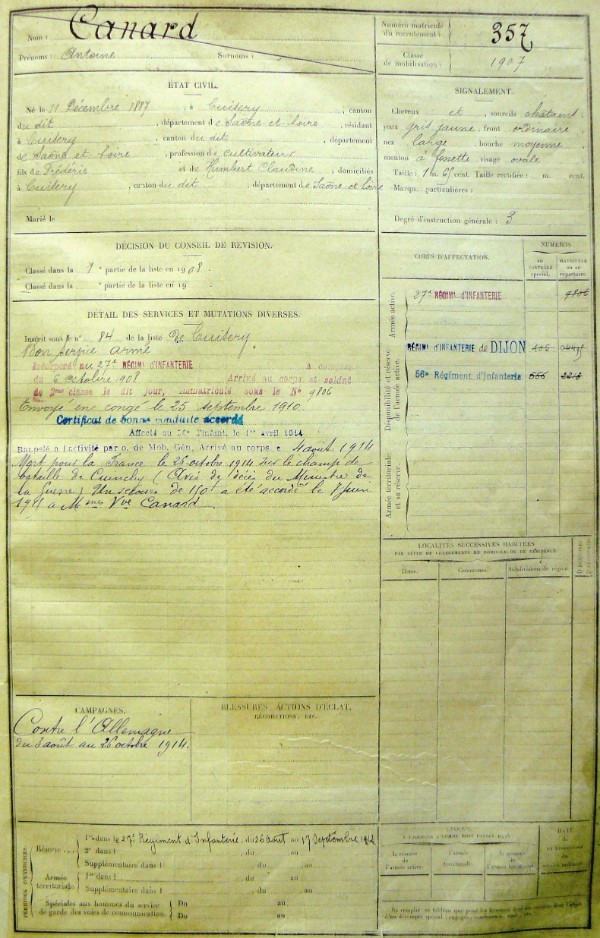 Nom : Canard
Prénoms : Antoine Surnoms :
Numéro matricule
du recrutement : 357
Classe
de mobilisation : 1907
ÉTAT CIVIL.
Né le 11 Décembre 1887, à Cuisery, canton
du dit, département de Saône-et-Loire, résidant
à Cuisery, canton du dit, département
de Saône-et-Loire, profession de cultivateur
fils de Frédéric et de Humbert Claudine, domiciliés
à Cuisery, canton du dit, département de Saône-et-Loire
Marié le
SIGNALEMENT.
Cheveux et sourcils châtain
yeux gris jaune, front ordinaire
nez large, bouche moyenne
menton à fossette, visage ovale
Taille : 1 m. cent. Taille rectifiée : m. cent.
Marques particulières :
Degré d'instruction générale : 3
DÉCISION DU CONSEIL DE REVISION.
Classé dans la 1e partie de la liste en 1908.
Classé dans la e partie de la liste en 19
DÉTAIL DES SERVICES ET MUTATIONS DIVERSES.
Inscrit sous le n° 84 de la liste de Cuisery
Bon service armé
Incorporé au 27e RÉGIMt D'INFANTERIE à compter
du 6 octobre 1908 Arrivé au corps et soldat
de 2me classe le dit jour, immatriculé sous le N° 9806
Envoyé en congé le 25 septembre 1910.
Certificat de bonne conduite accordé
Affecté au 56e d'Infant. le 1er avril 1914
Rappelé à l'activité par o. de Mob. Gén. Arrivé au corps le août 1914
Mort pour la France le 26 octobre 1914 sur le champ de
bataille de Cuinchy (Avis de décès du Ministre de
la Guerre) Un secours de 150f a été accordé le 7 Juin
à Mme Vve Canard
CORPS D'AFFECTATION.
NUMÉROS
AU CONTRÔLE spécial.
MATRICULE ou au répertoire.
Armée active.
27e RÉGIMt D'INFANTERIE 9806
Disponibilité et réserve de l'armée active.
RÉGIMt D'INFANTERIE de DIJON
56e Régiment d'Infanterie
Armée territoriale et sa réserve.
LOCALITÉS SUCCESSIVES HABITÉES
PAR SUITE DE CHANGEMENTS DE DOMICILE OU DE RÉSIDENCE.
Dates. Communes. Subdivision de région.
CAMPAGNES.
Contre l'Allemagne
du août au 26 octobre 1914.
BLESSURES, ACTIONS D'ÉCLAT,
DÉCORATIONS, ETC.
PÉRIODES D'EXERCICES
Réserve
1re dans le 27e Régiment d'Infanterie, du 26 août au 17 Septembre 1912
2e dans l , du au
Supplémentaire dans l , du au
Armée territoriale
1re dans l , du au
Supplémentaire dans l , du au
Spéciales aux hommes du service
de garde des voies de communication.
Du au
Du au